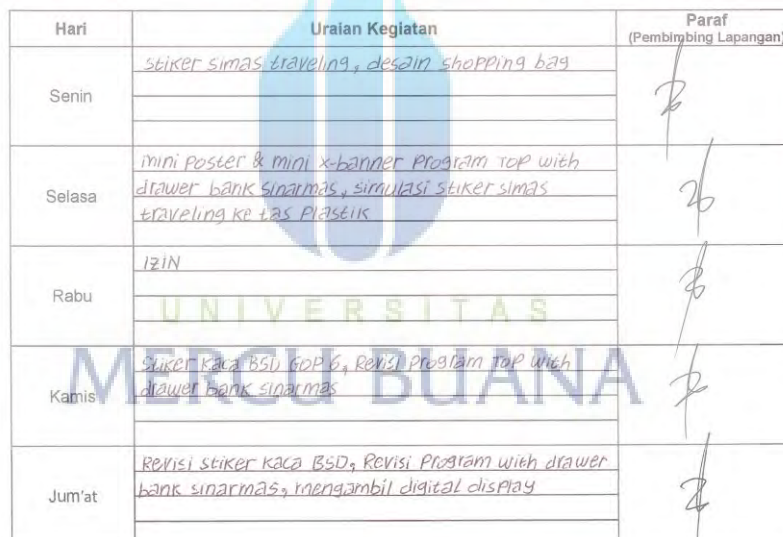 Hari Uraian Kegiatan Paraf
(Pembimbing Lapangan)
Senin
stiker simas traveling, desain shopping bag
Selasa
mini poster & mini x-banner program TOP with
drawer bank sinarmas, simulasi stiker simas
traveling ke tas plastik
Rabu
IZIN
UNIVERSITAS
MERCU BUANA
Kamis
Stiker kaca BSD GOP 6, Revisi program TOP with
drawer bank sinarmas
Jum'at
Revisi stiker kaca BSD, Revisi program with drawer
bank sinarmas, mengambil digital display